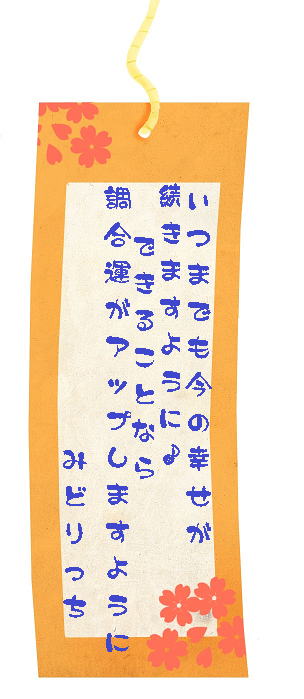 いつまでも今の幸せが
続きますように♪
できることなら
調合運がアップしますように
みどりっち